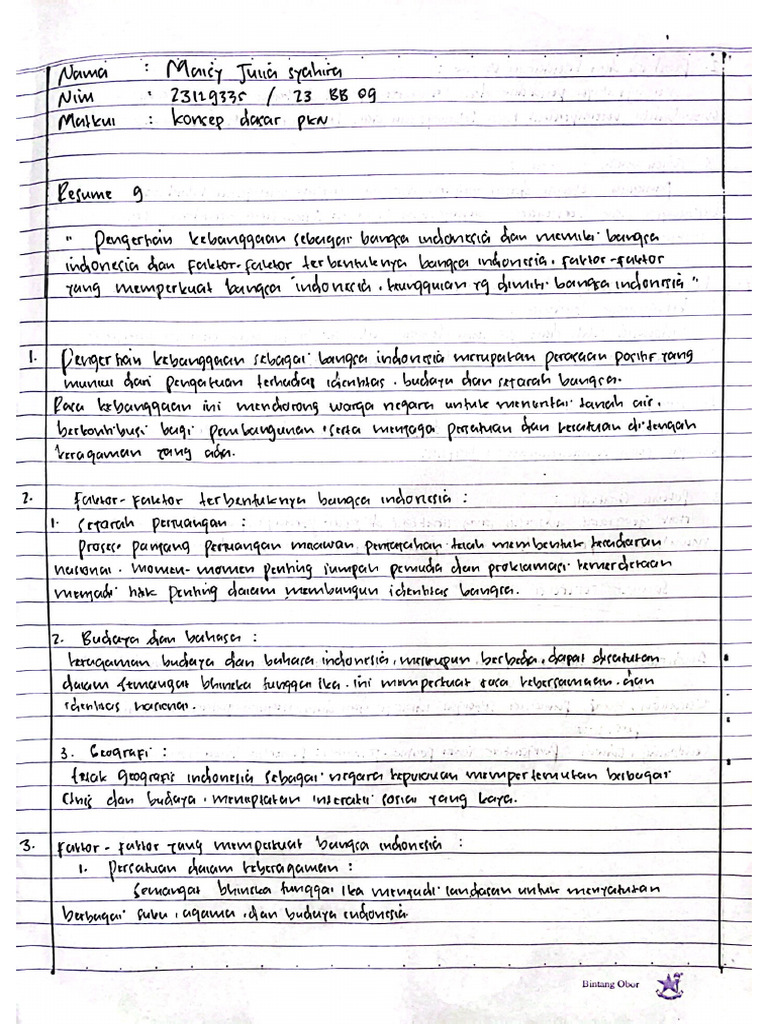 Nama : Maisy Julia syahira
Nim : 23129335 / 23 BB 09
Matkul : Konsep dasar PKN
Resume 9
" Pengertian kebanggaan sebagai bangsa indonesia dan memiliki bangsa
indonesia dan faktor-faktor terbentuknya bangsa indonesia, faktor-faktor
yang memperkuat bangsa indonesia, keunggulan yg dimiliki bangsa indonesia "
1. Pengertian kebanggaan sebagai bangsa indonesia merupakan perasaan positif yang
muncul dari pengakuan terhadap identitas, budaya dan sejarah bangsa.
Rasa kebanggaan ini mendorong warga negara untuk mencintai tanah air,
berkontribusi bagi pembangunan, serta menjaga persatuan dan kesatuan di tengah
keragaman yang ada.
2. Faktor-faktor terbentuknya bangsa indonesia :
1. Sejarah perjuangan :
Proses panjang perjuangan melawan penjajahan telah membentuk kesadaran
nasional. momen-momen penting sumpah pemuda dan proklamasi kemerdekaan
menjadi titik penting dalam membangun identitas bangsa.
2. Budaya dan bahasa :
keragaman budaya dan bahasa indonesia, meskipun berbeda, dapat disatukan
dalam semangat bhineka tunggal ika. ini memperkuat rasa kebersamaan dan
identitas nasional.
3. Geografi :
letak geografis indonesia sebagai negara kepulauan mempertemukan berbagai
etnis dan budaya, menciptakan interaksi sosial yang kaya.
3. Faktor-faktor yang memperkuat bangsa indonesia :
1. Persatuan dalam keberagaman :
Semangat bhineka tunggal ika menjadi landasan untuk menyatukan
berbagai suku, agama, dan budaya indonesia
Bintang Obor